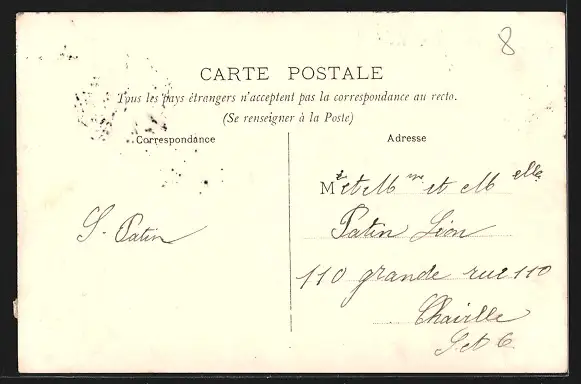 8
CARTE POSTALE
Tous les pays étrangers n'acceptent pas la correspondance au recto.
(Se renseigner à la Poste)
Correspondance
Adresse
S. Patin
Mr et Mme et Melle
Patin Léon
110 grande rue 110
Chaville
S et O.